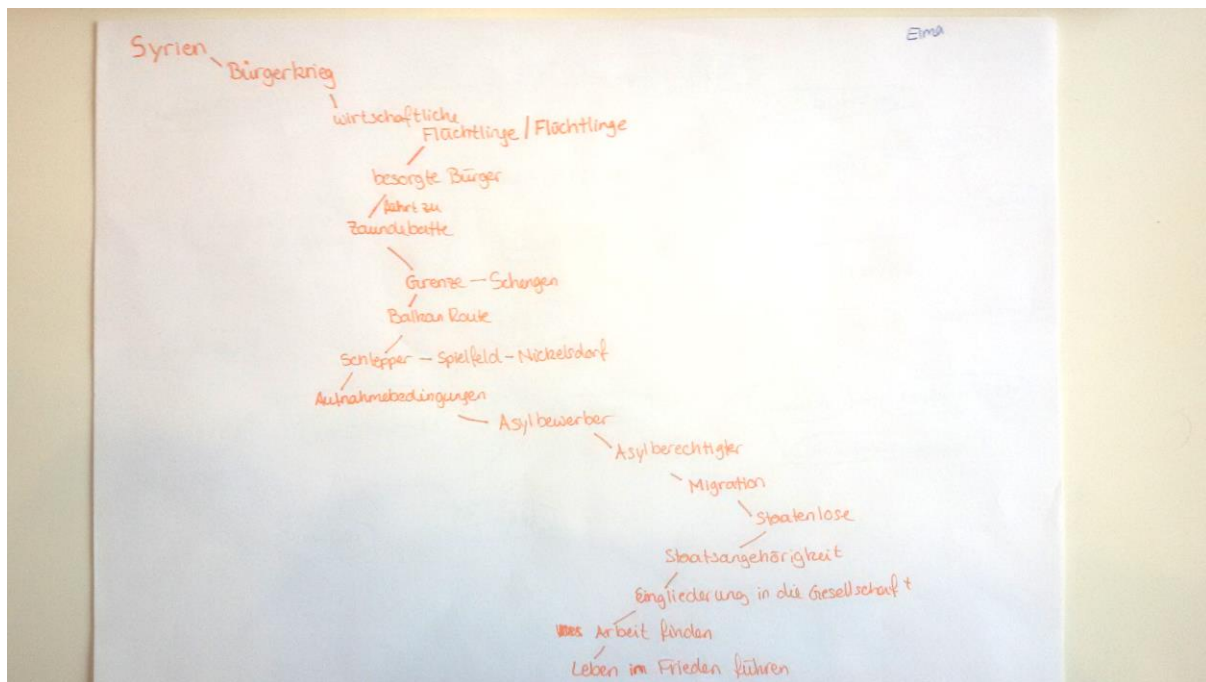 Elma
Syrien
Bürgerkrieg
wirtschaftliche
Flüchtlinge / Flüchtlinge
besorgte Bürger
führt zu
Zaundebatte
Grenze — Schengen
Balkan Route
Schlepper — Spielfeld — Nickelsdorf
Aufnahmebedingungen
Asylbewerber
Asylberechtigter
Migration
Staatenlose
Staatsangehörigkeit
Eingliederung in die Gesellschaft
Arbeit finden
Leben im Frieden führen